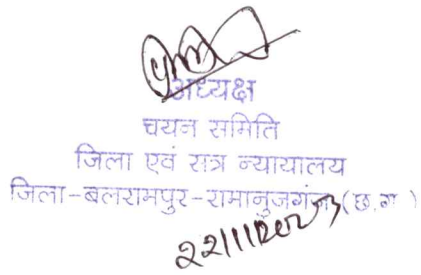 अध्यक्ष
चयन समिति
जिला एवं सत्र न्यायालय
जिला-बलरामपुर-रामानुजगंज (छ.ग)